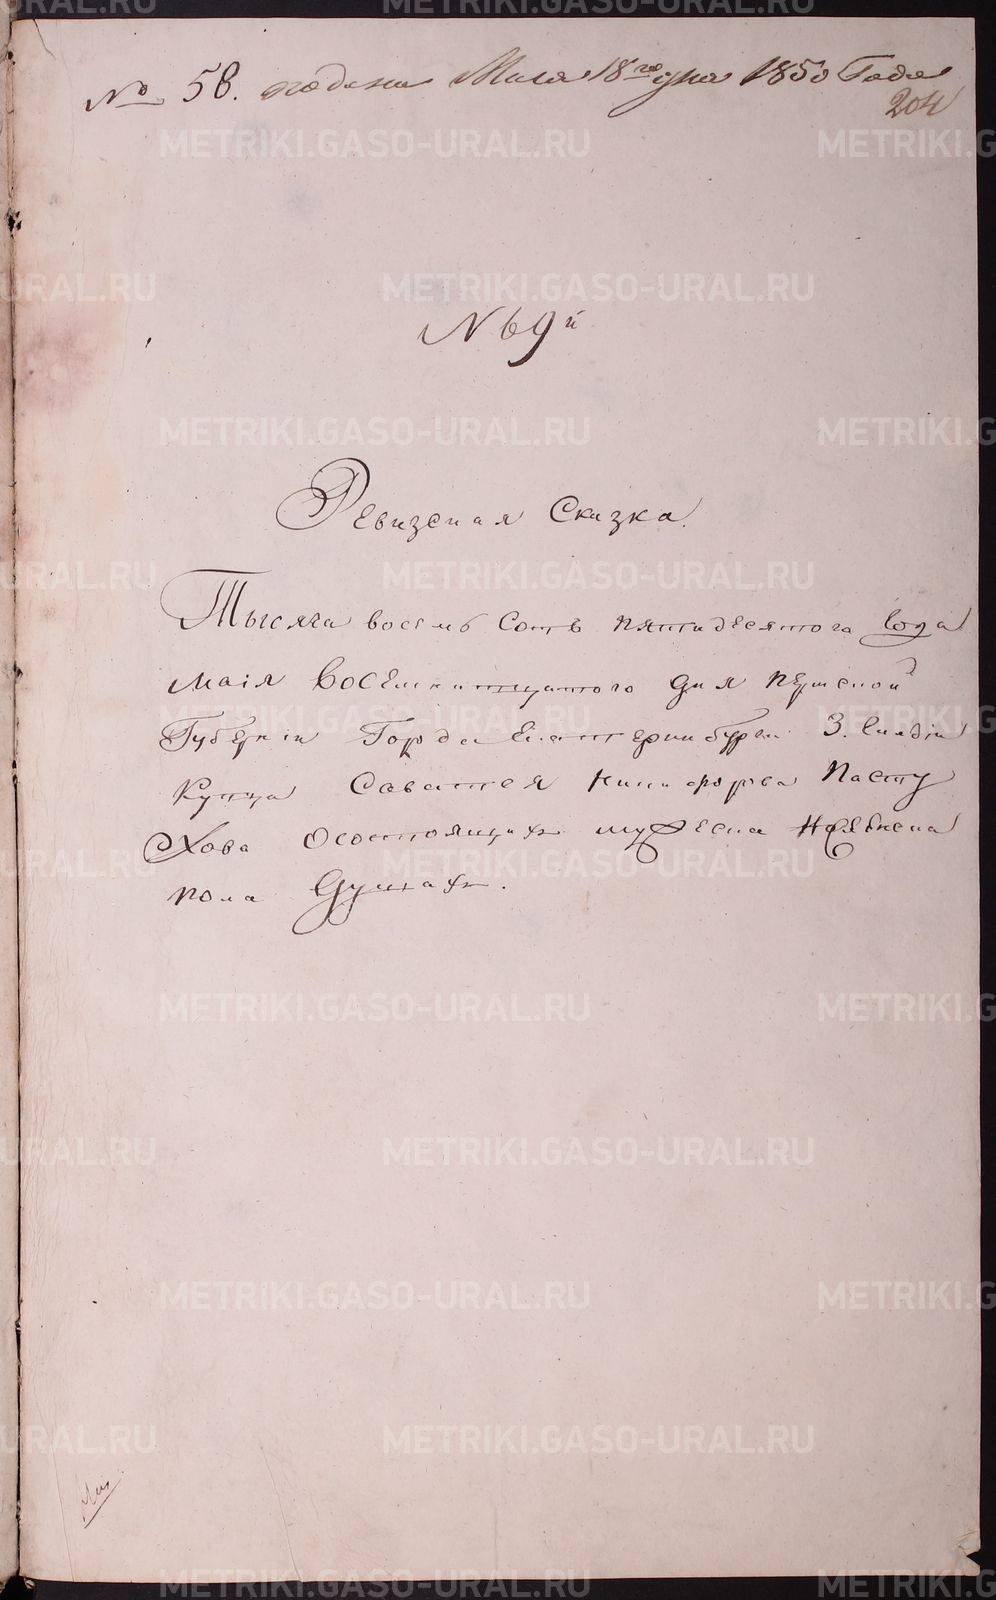 № 58. подана Маія 18го дня 1850 Года
204
№ 69й
Ревизсная Сказка.
Тысяча восемь Сотъ пятидесятого года
маія восемнатцатого дня пермской
Губерніи Города Екатеринбурга 3. гилдіи
Купца Саватея Никифорова Пасту
хова осостоящихъ мужеска иженска
пола Душахъ.
METRIKI.GASO-URAL.RU